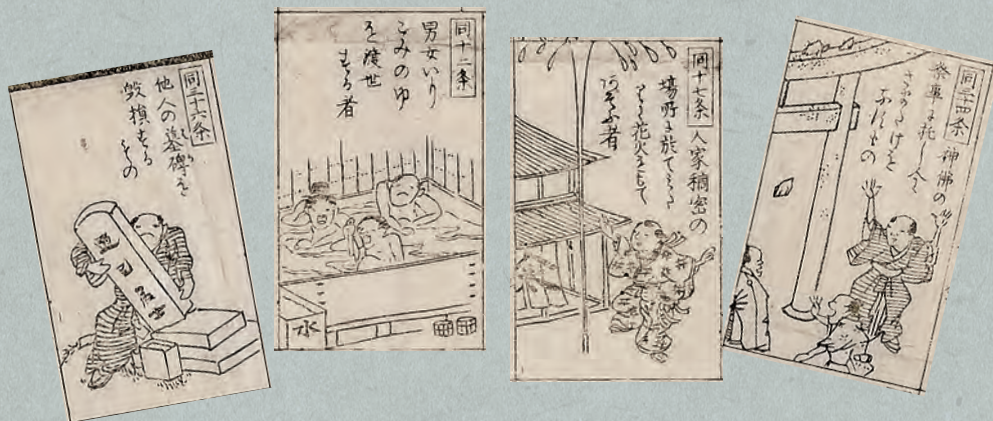 同三十六条
他人の墓碑を
毀損する
もの
同十二条
男女いり
こみのゆ
を渡世
する者
同十七条
人家稠密の
場所に於て
花火をもて
あそぶ者
同三四条
神佛の
祭事に托し人に
さまたけを
なすもの
水